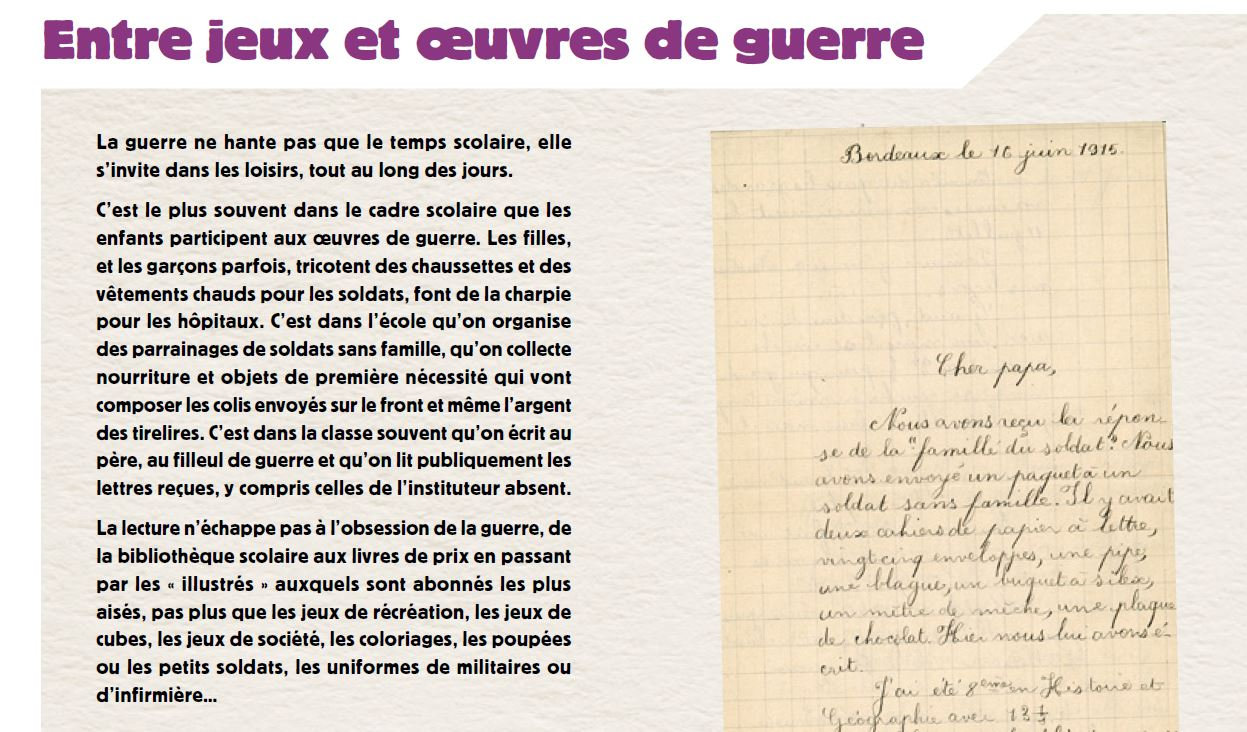 Entre jeux et œuvres de guerre
La guerre ne hante pas que le temps scolaire, elle
s'invite dans les loisirs, tout au long des jours.
C'est le plus souvent dans le cadre scolaire que les
enfants participent aux œuvres de guerre. Les filles,
et les garçons parfois, tricotent des chaussettes et des
vêtements chauds pour les soldats, font de la charpie
pour les hôpitaux. C'est dans l'école qu'on organise
des parrainages de soldats sans famille, qu'on collecte
nourriture et objets de première nécessité qui vont
composer les colis envoyés sur le front et même l'argent
des tirelires. C'est dans la classe souvent qu'on écrit au
père, au filleul de guerre et qu'on lit publiquement les
lettres reçues, y compris celles de l'instituteur absent.
La lecture n'échappe pas à l'obsession de la guerre, de
la bibliothèque scolaire aux livres de prix en passant
par les « illustrés » auxquels sont abonnés les plus
aisés, pas plus que les jeux de récréation, les jeux de
cubes, les jeux de société, les coloriages, les poupées
ou les petits soldats, les uniformes de militaires ou
d'infirmière...
Bordeaux le 16 juin 1915.
Cher papa,
Nous avons reçu la répon
se de la "famille du soldat". Nous
avons envoyé un paquet à un
soldat sans famille. Il y avait
deux cahiers de papier à lettre,
vingt cinq enveloppes, une pipe,
une blague, un briquet à silex,
un mètre de mèche, une plaque
de chocolat. Hier nous lui avons é-
crit.
J'ai été 8eme en Histoire et
Géographie avec